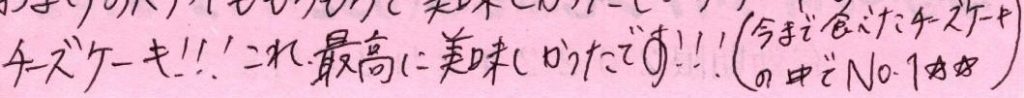 チーズケーキ!!!これ最高に美味しかったです!!!(今まで食べたチーズケーキ
の中でNo.1☆☆)